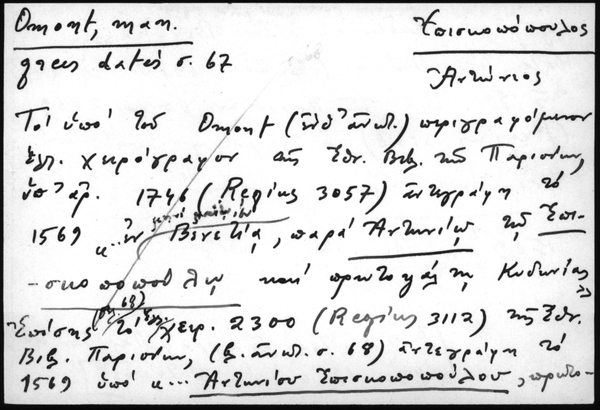 Omont, man. Ἐπισκοπόπουλος
grecs datés σ. 67 Ἀντώνιος
Τό ὑπό τοῦ Omont (ἔνθ' ἀνωτ.) περιγραφόμενον
ἑλλ. χειρόγραφον τῆς Ἐθν. Βιβλ. τῶν Παρισίων,
ὑπ' ἀρ. 1746 (Regius 3057) ἀντεγράφη τό
1569 ἐν Βενετίᾳ, παρά Ἀντωνίῳ τῷ Ἐπι-
-σκοποπούλῳ καί πρωτοψάλτῃ Κυδωνίας
Ἐπίσης (σ. 68) τό ἑλλ. χειρ. 2300 (Regius 3112) τῆς Ἐθν.
Βιβλ. Παρισίων, (ἔ. ἀνωτ. σ. 68) ἀντεγράφη τό
1569 ὑπό κ... Ἀντωνίου Ἐπισκοποπούλου, πρωτο-